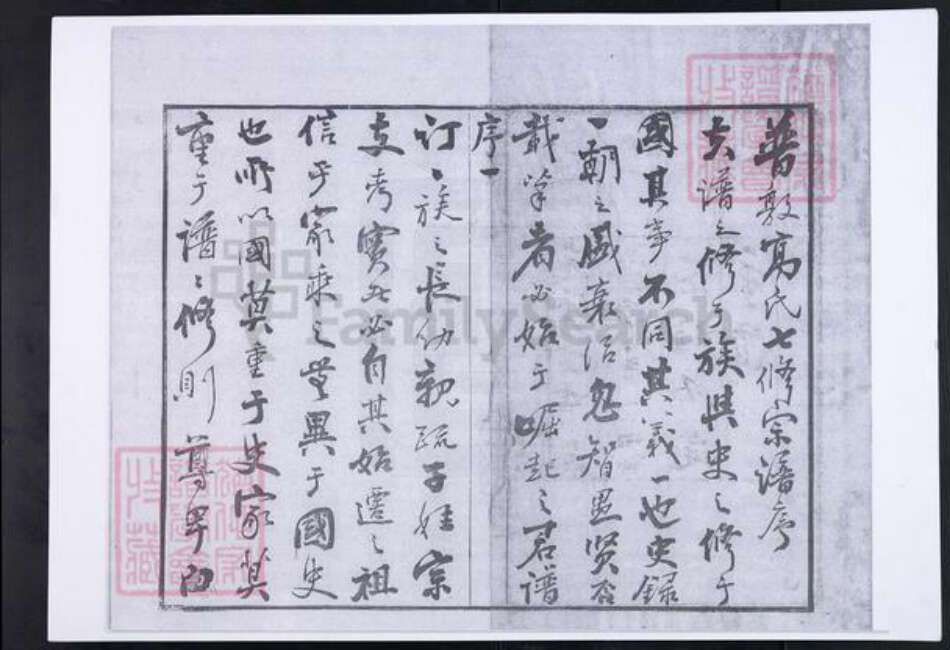 普敦高氏七修宗譜序
夫譜之修于族與史之修于
國其事不同其義一也史録
一朝之盛衰治忽智愚賢否
載筆者必始于崛起之君譜
序一
訂一族之長幼親疏子姓宗
支考實者必自其始遷之祖
信乎家乘之無異于國史
也所以國莫重于史家莫
重于譜譜修則尊卑由
FamilySearch